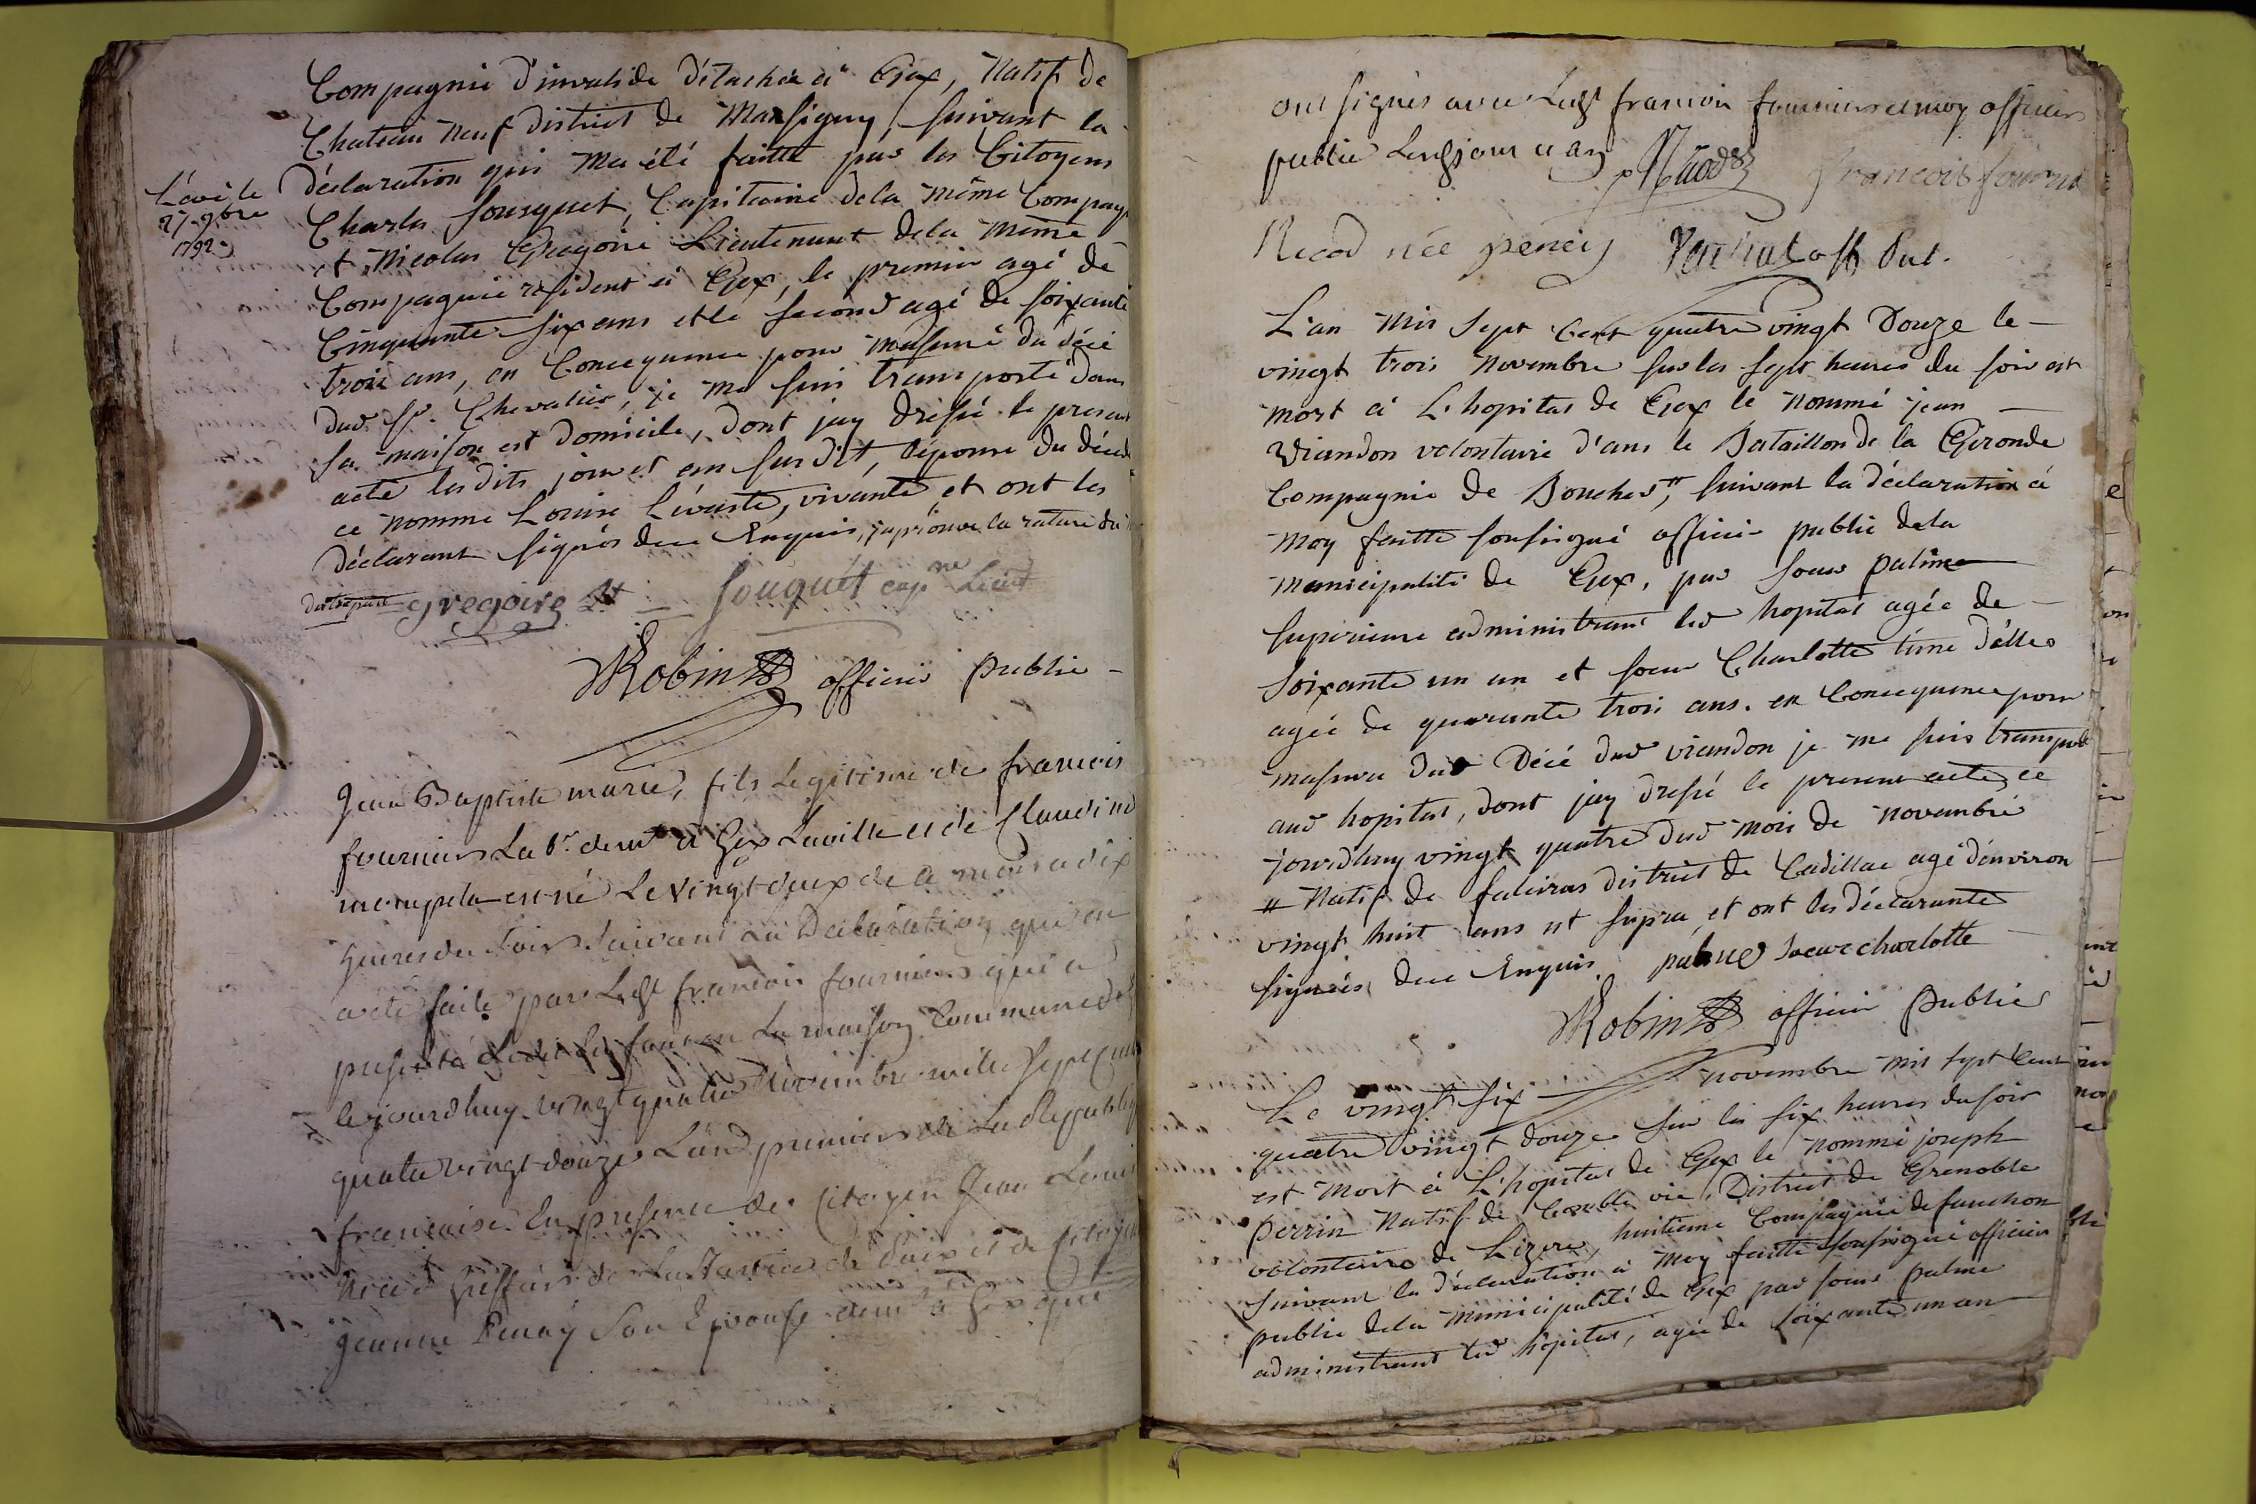 Compagnie d'invalide détachée à Gex, Natif de
Chateau neuf district de Marsigny, suivant la
déclaration qui ma été faitte par les Citoyens
Levé le
27 9bre
1792
Charles Sousquet, Capitaine dela même Compag
et Nicolas Gregoire Lieutenant dela même
Compagnie résident à Gex, le premier agé de
Cinquante six ans et le second agé de soixante
trois ans, en Concequence pour m'assuré du décé
dud. Sr. Chevalier, je me suis transporté dans
sa maison est domicile, dont jay dressé le present
acte lesdits jour et an susdit, l'épouse du décédé
ce nomme Louise Lévasté, vivante et ont les
déclarant signés dece Enquis, japrouve la rature du
gregoire Lt souquét capne
Robin officier public
Jean Baptiste marie, fils Legitime de francois
fournier Lab.r demt à Gex Laville et de Claudine
est né Le vingt deux de ce mois a dix
heures du soir suivant La Declaration qui en
a eté faite par Led francois fournier qui a
presenté led fils en La maison Commune de
cejourdhuy vingt quatre Novembre mille sept cent
quatre vingt douze Lan premier de La Republique
francaise En presence de Citoyen Jean Louis
Nicod greffier de La Justice de Paix et de Citoyenne
Jeanne Penay Son Epouse demt à Gex qui
ont signés avec Led francois fournier et moy officier
public Lesd jour et an Nicod francois fournié
Nicod née peney off Pub.
L'an mis sept Cent quatre vingt Douze le
vingt trois novembre sur les sept heures du soir est
mort à L'hopital de Gex le nommé jean
Viandon volontaire d'ans le Bataillon de la Gironde
Compagnie de Boucher, suivant la déclaration à
moy faitte sousigné officier public dela
municipalité de Gex, par soeur palme
superieure administrant led hopital agée de
soixante un an et soeur Charlotte time d'elles
agée de quarante trois ans. en Concequence pour
massure du Décé dud viandon je me suis transporté
aud hopital, dont jay dressé le present acte, ce
jourdhuy vingt quatre dud mois de novembre
# Natif de faleiras district de Cadillac agé d'environ
vingt huit ans ut supra, et ont les déclarante
signées dece Enquis. palme soeur charlotte
Robin officier public
Le vingt six novembre mis sept Cent
quatre vingt douze sur les six heures du soir
est mort à L'hopital de Gex le nommé joseph
perrin Natif de vie, District de Grenoble
volontaire de Lizere, huitieme Compagnie de fauchon
suivant la déclaration à moy faitte sousigné officier
public dela municipalité de Gex par soeur palme
administrant led hôpital, agée de soixante un an